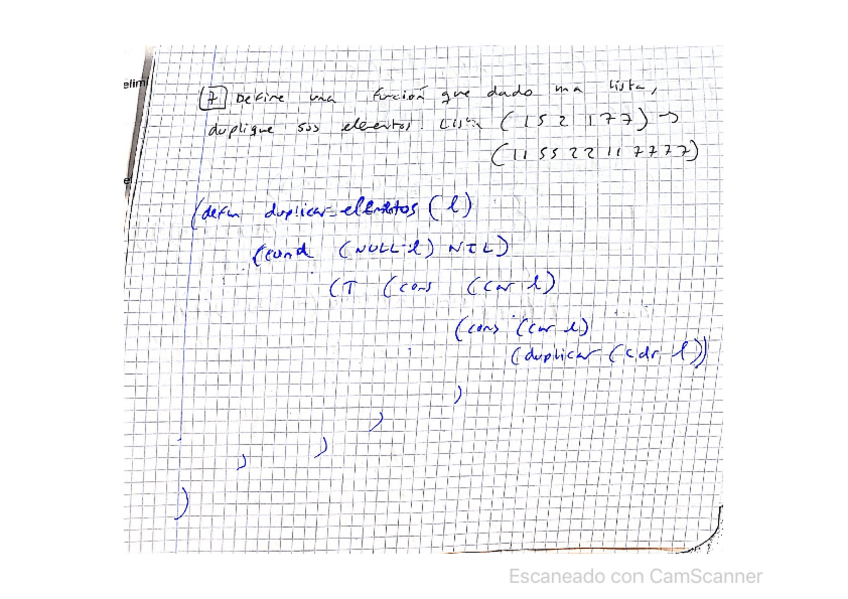 elimi
7 Define una función que dado una lista,
duplique sus elementos. Lista (1 5 2 1 7 7) →
(1 1 5 5 2 2 1 1 7 7 7 7)
(defun duplicar-elementos (l)
(cond (NULL l) NIL)
(T (cons (car l)
(cons (car l)
(duplicar (cdr l))
)
)
)
)
)
Escaneado con CamScanner